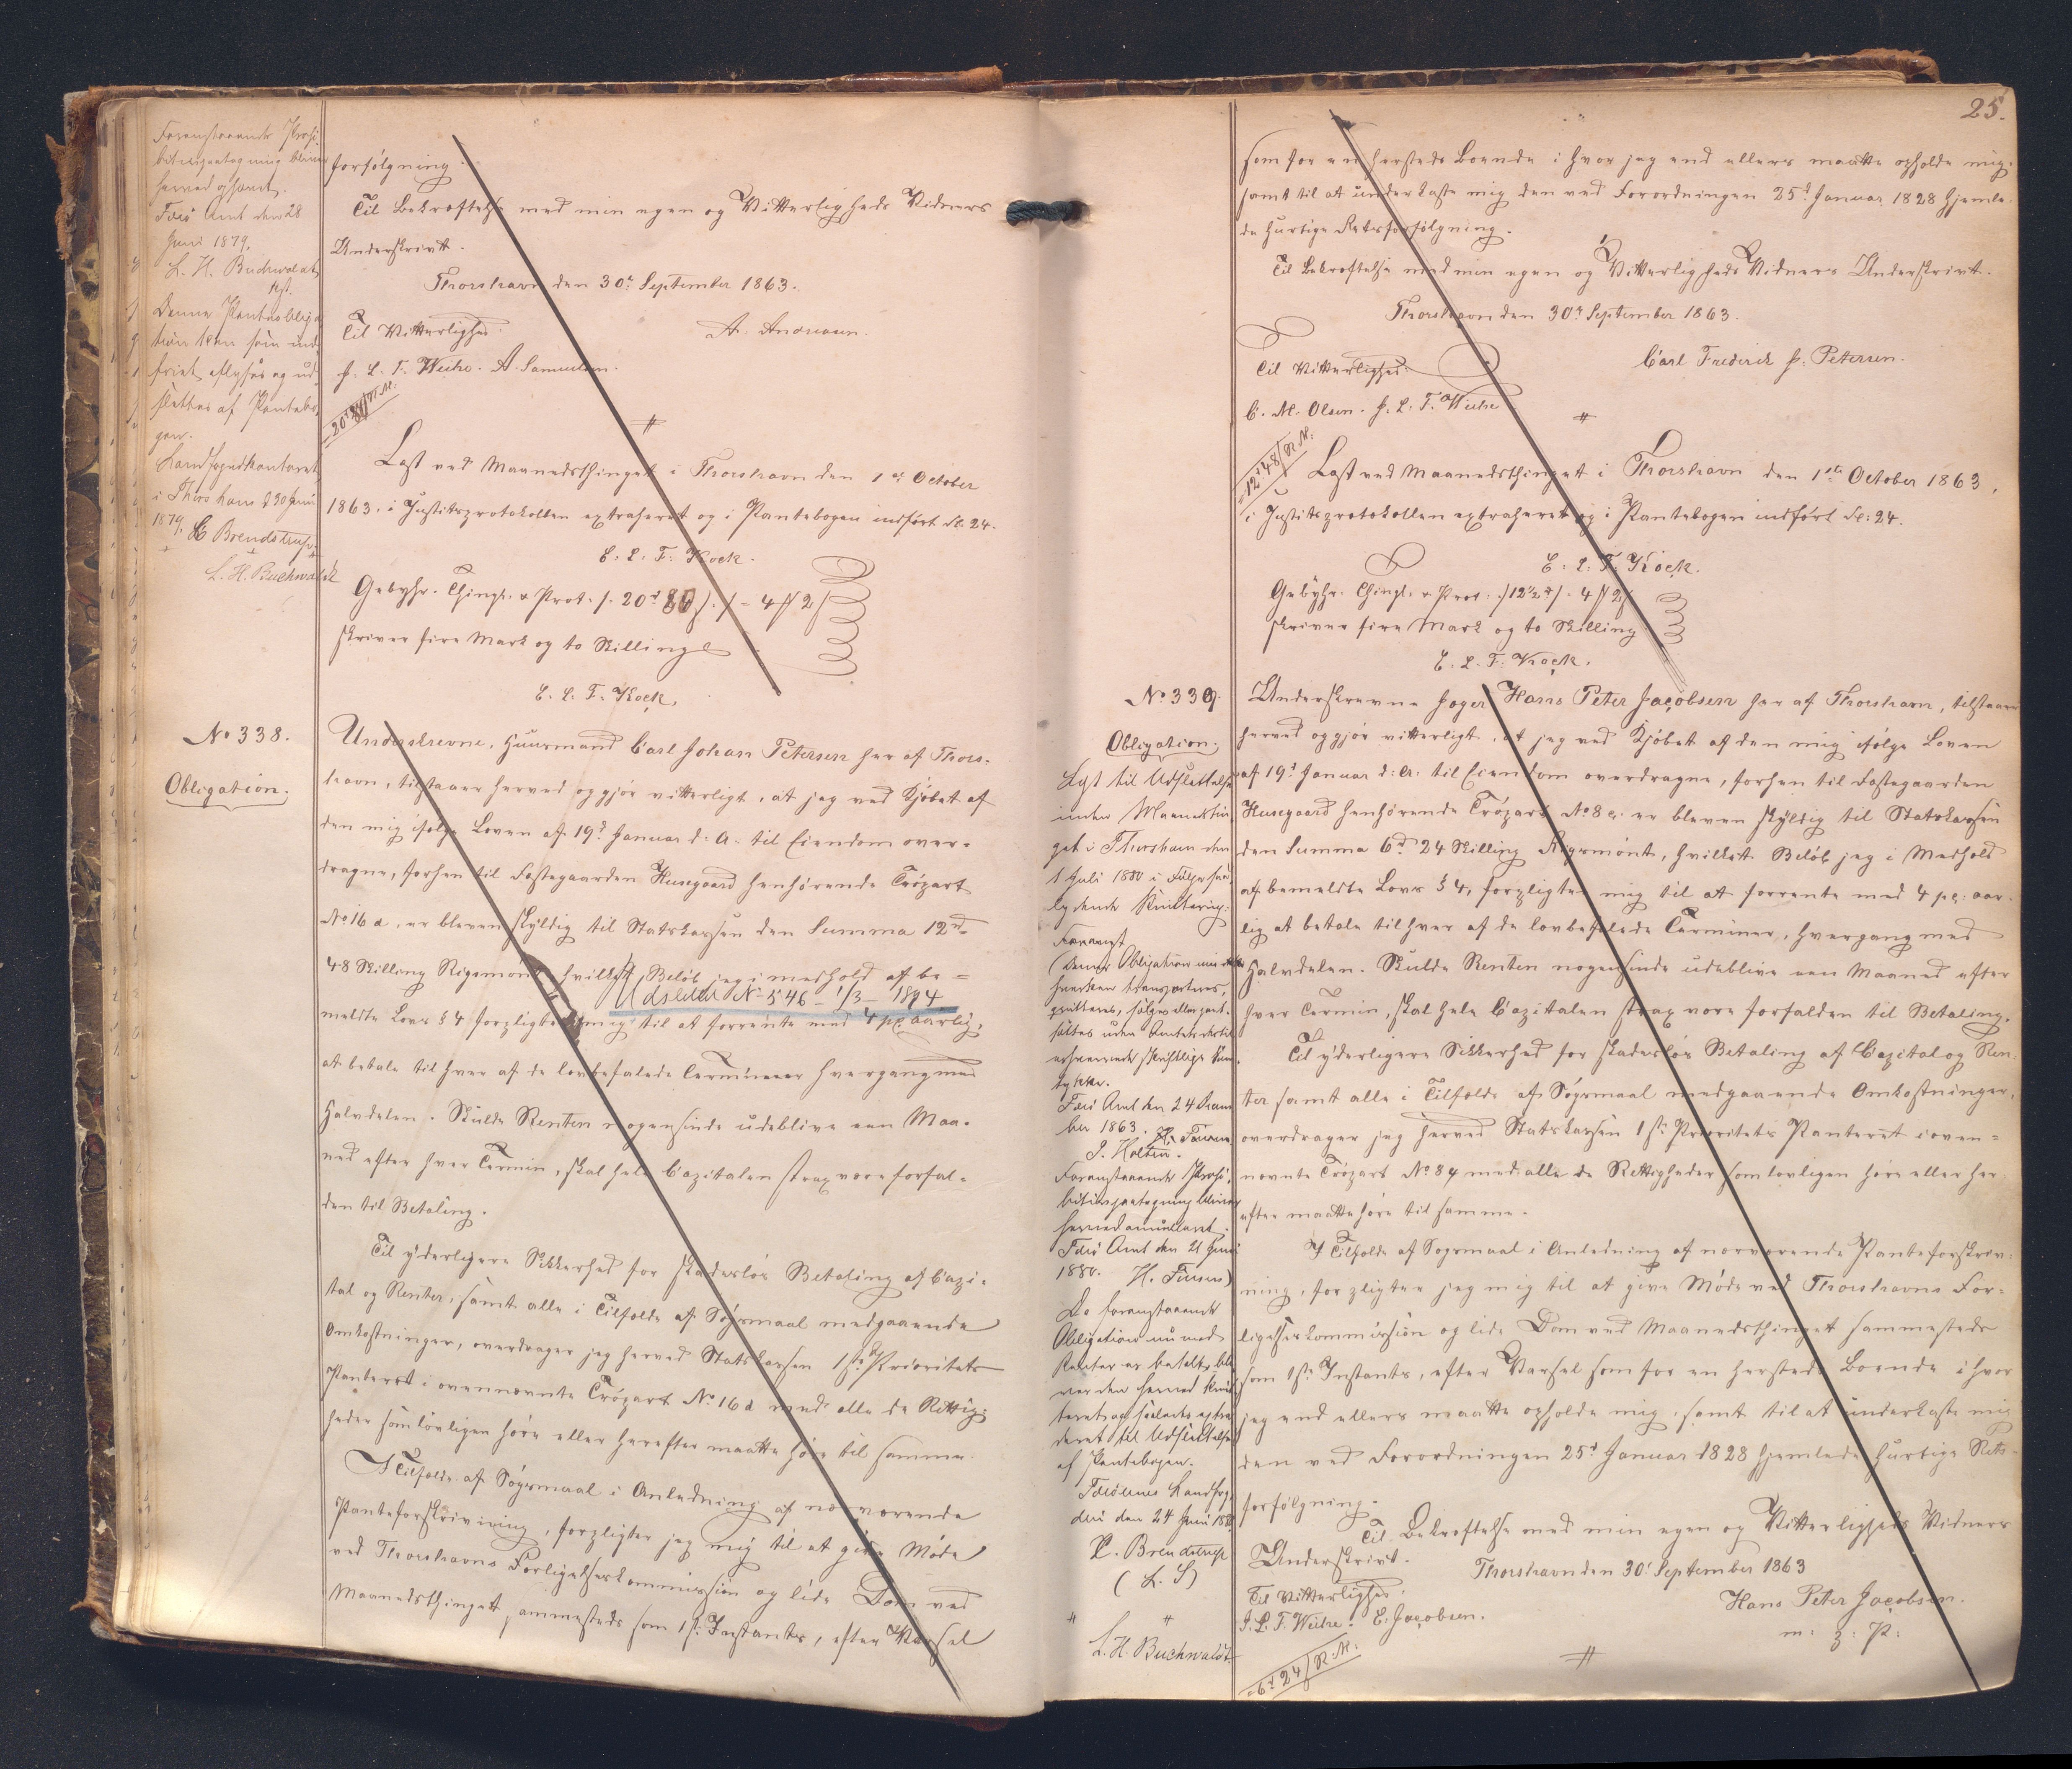 Foranstaaende Prohi-
bitivpaategning bliver
herved ophævet.
Færø Amt den 28
Juni 1879.
L. H. Buchwaldt
kst.
Denne Pantobliga
tion kan som ind-
friet aflyses og ud-
slettes af Pantebo-
gen.
Landfogedkontoret
i Thorshavn d 30 Juni
1879.
C Brendstrup
L. H. Buchwaldt
forfølgning.
Til Bekræftelse med min egen og Vitterligheds Vidners
Underskrivt.
Thorshavn den 30t September 1863.
Til Vitterlighed:
A. Andreasen.
H. L. T. Weihe. A. Samuelsen.
Læst ved Maanedsthinget i Thorshavn den 1ste October
1863. i Justitsprotokollen extraheret og i Pantebogen indført Fol: 24.
E. L. F. Kock.
Gebyhr. Thingl. & Prot. /. 20rd 80 s. / = 4 # 2 s
skriver fire Mark og to Skilling
E. L. F. Kock.
No 338.
Obligation.
Underskrevne, Huusmand Carl Johan Petersen her af Thors-
havn, tilstaaer herved og gjør vitterligt, at jeg ved Kjøbet af
den mig ifølge Loven af 19d Januar d: A. til Eiendom over-
dragne, forhen til Fæstegaarden Huusegaard henhørende Trøpart
No 16 d, er bleven skyldig til Statskassen den Summa 12rd
48 Skilling Rigsmønt, hvilket Beløb jeg i medhold af be-
Udslettet No 546 - 1/3 - 1894
meldte Lovs § 4 forpligter mig til at forrente med 4 pC. aarlig,
at betale til hver af de lovbefalede Terminer hvergang med
Halvdelen. Skulde Renten nogensinde udeblive een Maa-
ned efter hver Termin, skal hele Capitalen strax være forfal-
den til Betaling.
Til yderligere Sikkerhed for skadesløs Betaling af Capi-
tal og Renter, samt alle i Tilfælde af Søgsmaal medgaaende
Omkostninger, overdrager jeg herved Statskassen 1ste Prioritets
Panteret i ovennævnte Trøpart No 16 d med alle de Rettig-
heder som lovligen høre eller herefter maatte høre til samme.
I Tilfælde af Søgsmaal i Anledning af nærværende
Panteforskrivning, forpligter jeg mig til at give Møde
ved Thorshavns Forligelseskommission og lide Dom ved
Maanedsthinget sammesteds som 1ste Instants, efter Varsel
25.
som for en hersteds Boende i hvor jeg end ellers maatte opholde mig,
samt til at underkaste mig den ved Forordningen 25d Januar 1828 hjemle-
de hurtige Retsforfølgning.
Til Bekræftelse med min egen og Vitterligheds Vidners Underskrivt.
Thorshavn den 30t September 1863.
Til Vitterlighed:
Carl Frederik J. Petersen.
C. M. Olsen. H. L. T. Weihe
= 12rd 48 s R. M:
Læst ved Maanedsthinget i Thorshavn den 1ste October 1863,
i Justitsprotokollen extraheret og i Pantebogen indført Fol: 24.
E. L. F. Kock.
Gebyhr. Thingl. & Prot: /12½rd/. 4 # 2 s
skriver fire Mark og to Skilling
E. L. F. Kock.
No 339.
Obligation.
Lyst til Udslettelse
inden Maanedsthin
get i Thorshavn den
1 Juli 1880 i Følge saa
lydende Kvittering:
Foranst
(Denne Obligation maa
hverken transporteres,
qvitteres, sælges eller pant-
sættes uden Amtets dertil
erhvervede skriftlige Sam
tykke.
Færø Amt den 24 Decem
ber 1863. 
S. Holten.
Foranstaaende Prohi-
bitivpaategning bliver
herved annulleret.
Færø Amt den 21 Juni
1880. H. Finsen)
Da foranstaaende
Obligation nu med
Renter er betalt, bli
ver den herved kvit
teret og saaledes extra
deret til Udslettelse
af Pantebogen.
Færøernes Landfog-
deri den 24 Juni 1880
C. Brendstrup
(L. S)
L. H. Buchwaldt
Underskrevne Jager Hans Peter Jacobsen her af Thorshavn, tilstaaer
herved og gjør vitterligt, at jeg ved Kjøbet af den mig ifølge Loven
af 19d Januar d: A. til Eiendom overdragne, forhen til Fæstegaarden
Huusegaard henhørende Trøpart No 8 q. er bleven skyldig til Statskassen
den Summa 6rd 24 Skilling Rigsmønt, hvilket Beløb jeg i Medhold
af bemeldte Lovs § 4, forpligter mig til at forrente med 4 pC: aar-
lig at betale til hver af de lovbefalede Terminer, hvergang med
Halvdelen. Skulde Renten nogensinde udeblive een Maaned efter
hver Termin, skal hele Capitalen strax være forfalden til Betaling.
Til yderligere Sikkerhed for skadesløs Betaling af Capital og Ren-
ter samt alle i Tilfælde af Søgsmaal medgaaende Omkostninger,
overdrager jeg herved Statskassen 1ste Prioritets Panteret i oven-
nævnte Trøpart No 8 q med alle de Rettigheder som lovligen høre eller her-
efter maatte høre til samme.
I Tilfælde af Søgsmaal i Anledning af nærværende Panteforskriv-
ning, forpligter jeg mig til at give Møde ved Thorshavns For-
ligelseskommission og lide Dom ved Maanedsthinget sammesteds
som 1ste Instants, efter Varsel som for en hersteds Boende i hvor
jeg end ellers maatte opholde mig, samt til at underkaste mig
den ved Forordningen 25d Januar 1828 hjemlede hurtige Rets-
forfølgning.
Til Bekræftelse med min egen og Vitterligheds Vidners
Underskrivt.
Thorshavn den 30t September 1863
Til Vitterlighed:
Hans Peter Jacobsen.
H. L. T. Weihe. E. Jacobsen.
m: p: P:
= 6rd 24 s R. M: